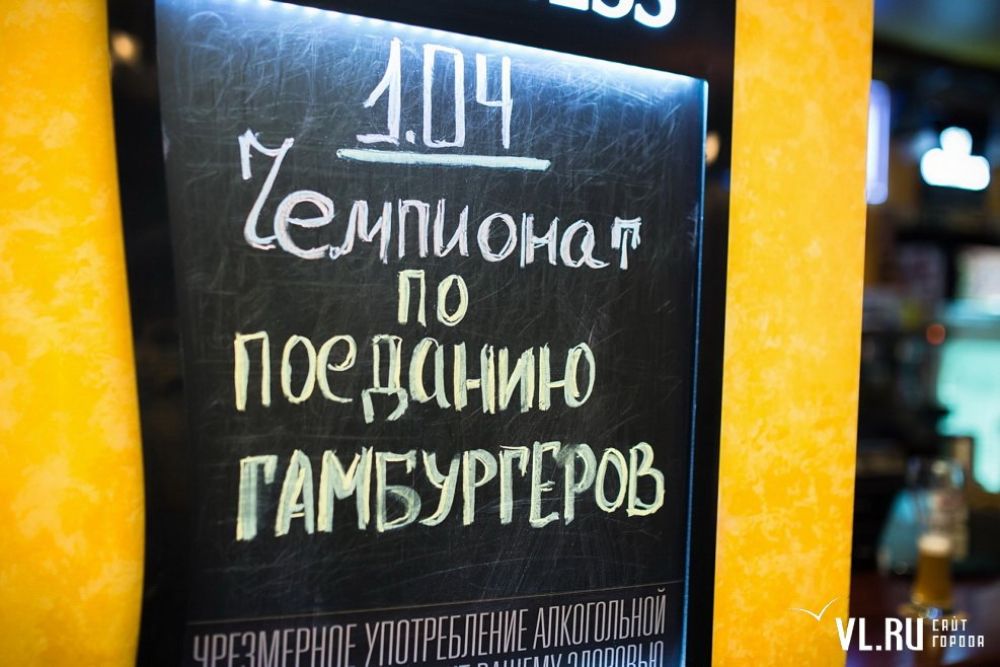 1.04
Чемпионат
по
поеданию
ГАМБУРГЕРОВ
ЧРЕЗМЕРНОЕ УПОТРЕБЛЕНИЕ АЛКОГОЛЬНОЙ
ВАШЕМУ ЗДОРОВЬЮ
VL.RU САЙТ ГОРОДА